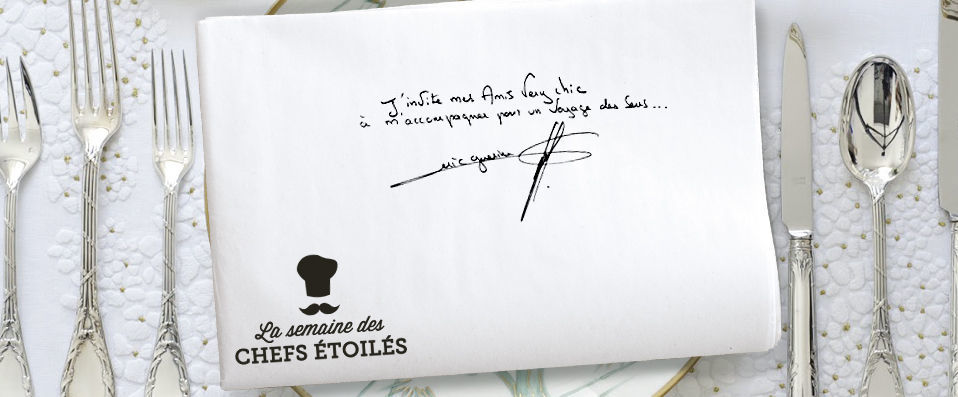 J'invite mes Amis Very chic
à m'accompagner pour un Voyage des Sens...
eric guerin
La semaine des
CHEFS ÉTOILÉS